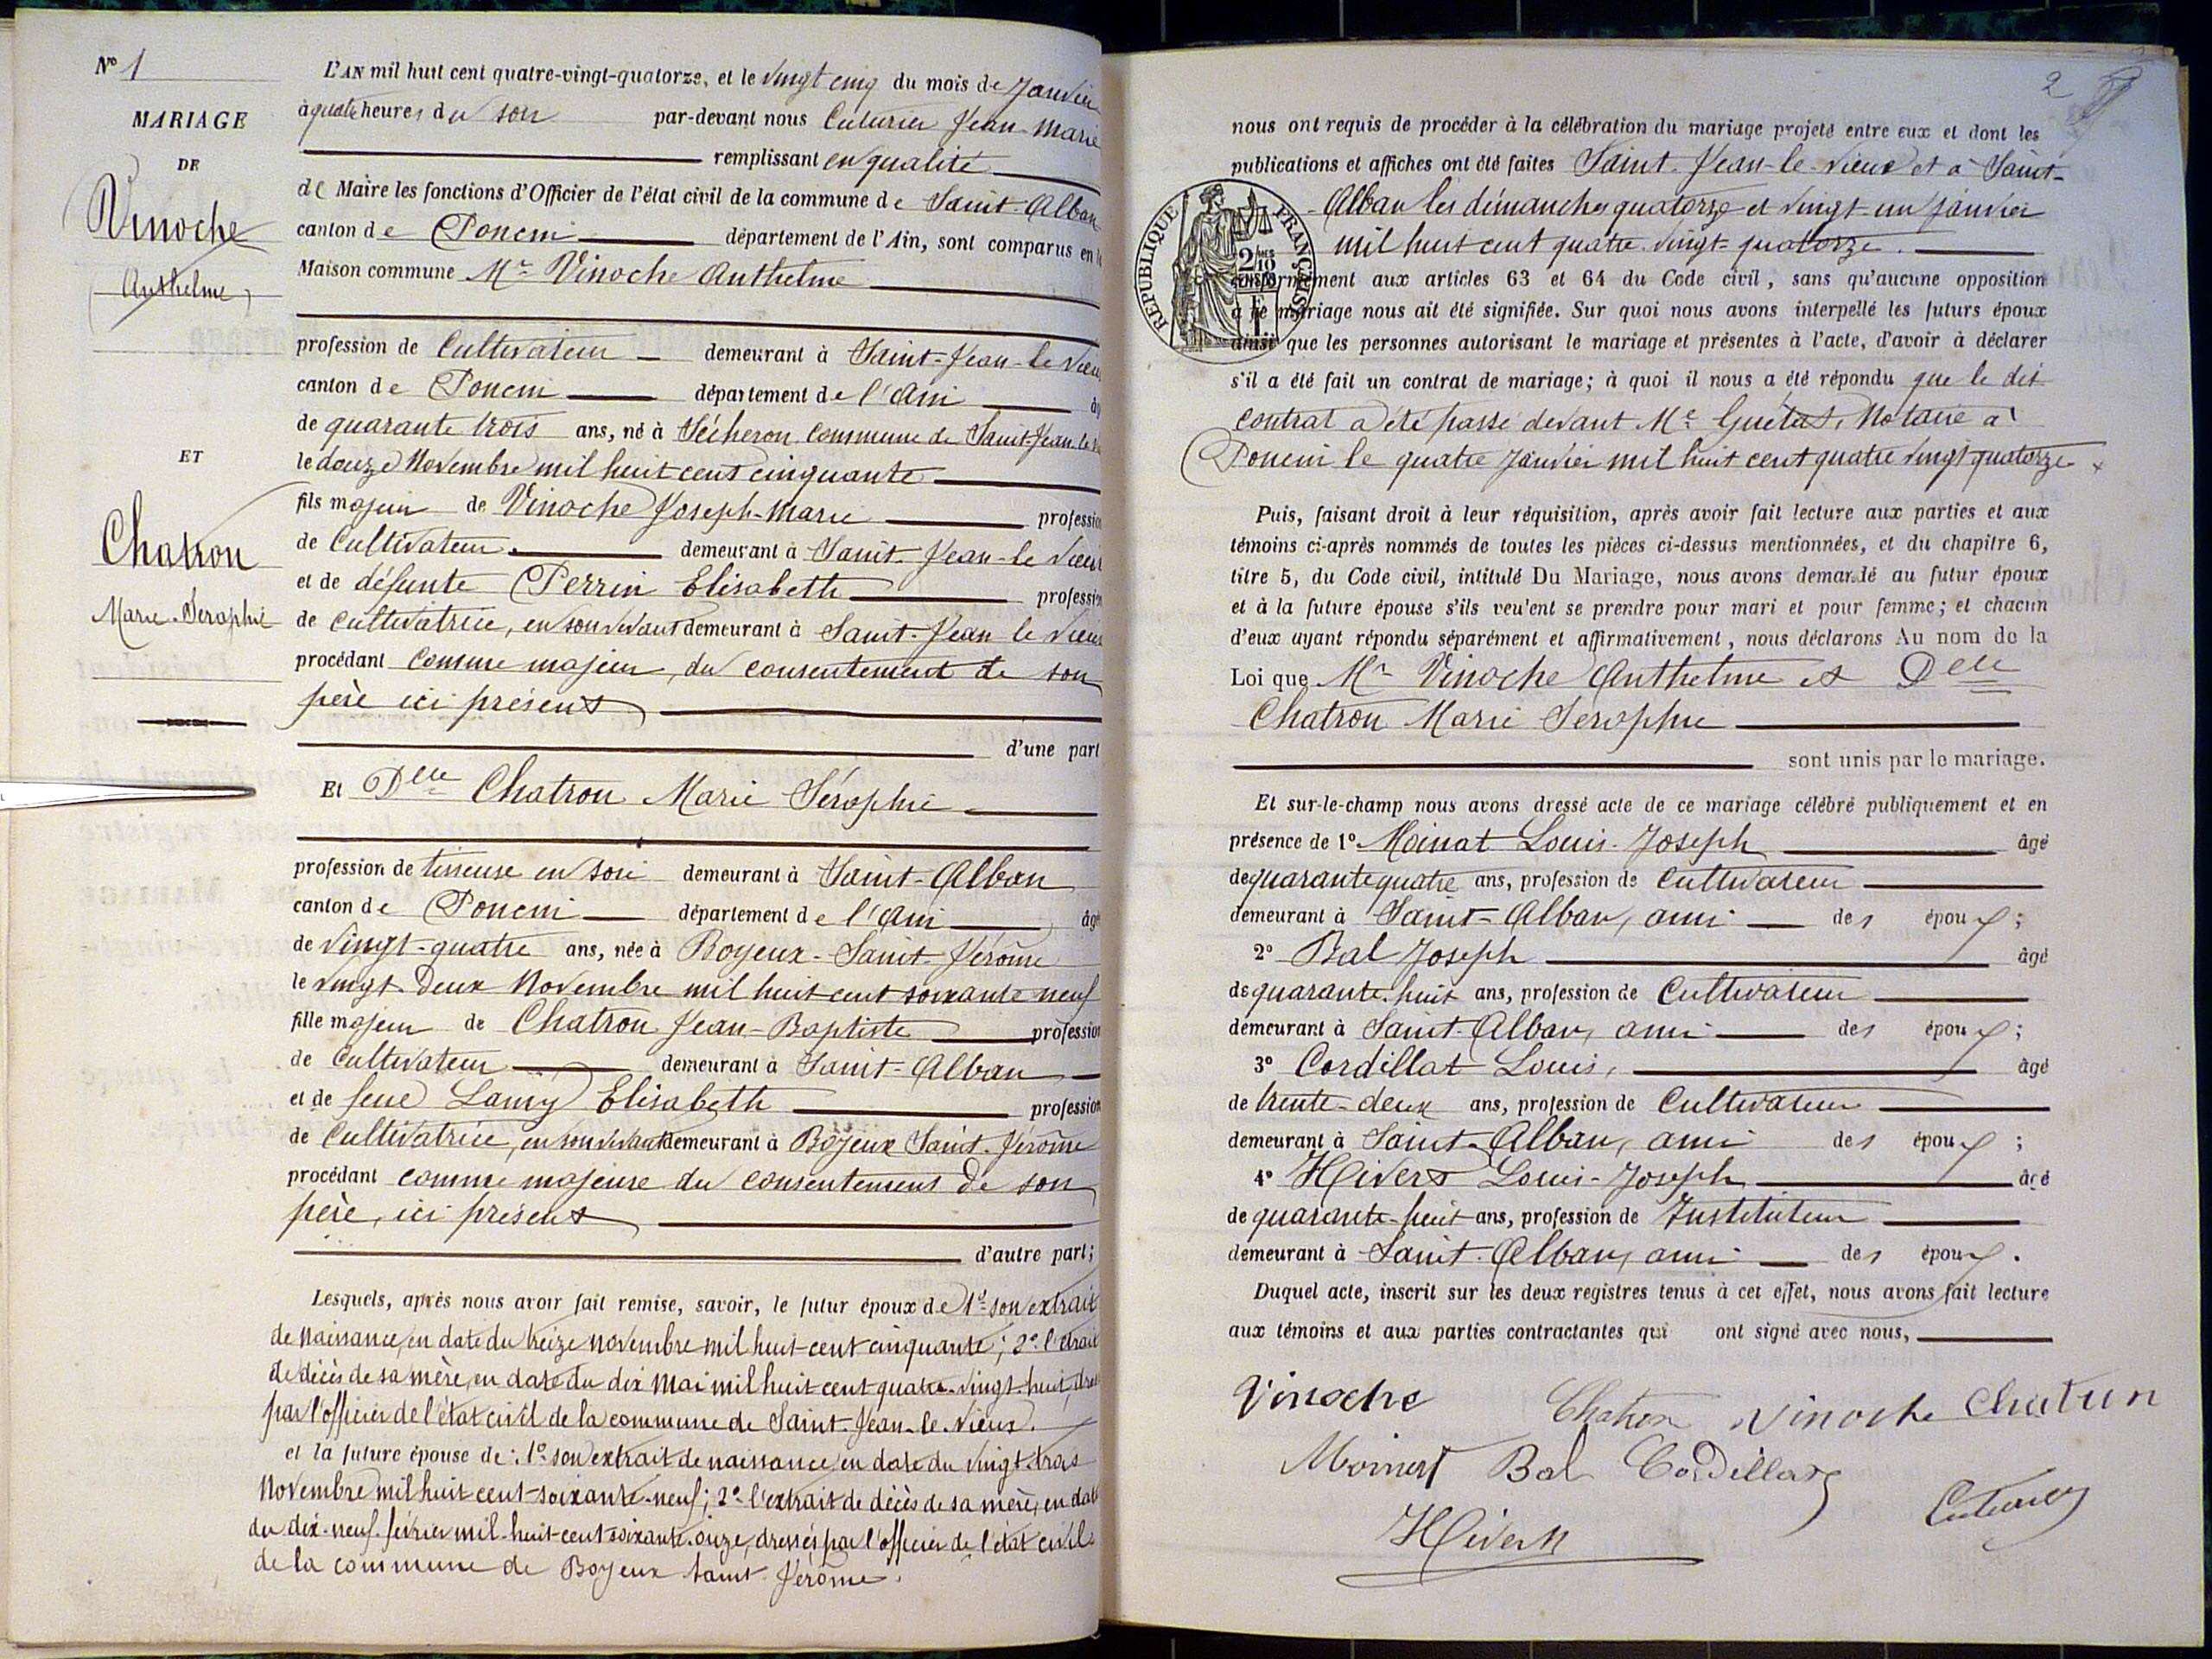 N° 1
MARIAGE
DE
Vinoche
Anthelme
ET
Chatron
Marie-Seraphie
L'AN mil huit cent quatre-vingt-quatorze, et le vingt cinq du mois de Janvier
à quatre heures du soir par-devant nous Cuturier Jean Marie
remplissant en qualité
de Maire les fonctions d'Officier de l'état civil de la commune de Saint-Alban
canton de Poncin département de l'Ain, sont comparus en la
Maison commune Mr Vinoche Anthelme
profession de Cultivateur demeurant à Saint-Jean-le-Vieux
canton de Poncin département de l'Ain âgé
de quarante trois ans, né à Sécheron commune de Saint-Jean-le-
le douze Novembre mil huit cent cinquante
fils majeur de Vinoche Joseph-Marie profession
de Cultivateur demeurant à Saint-Jean-le Vieux
et de défunte Perrin Elisabeth profession
de cultivatrice, en son vivant demeurant à Saint-Jean le Vieux
procédant comme majeur, du consentement de son
père ici présent
d'une part
Et Delle Chatron Marie Séraphie
profession de tisseuse en soie demeurant à Saint-Alban
canton de Poncin département de l'Ain âgé
de vingt-quatre ans, née à Boyeux-Saint-Jérôme
le vingt-deux Novembre mil huit cent soixante neuf
fille majeur de Chatron Jean-Baptiste profession
de Cultivateur demeurant à Saint-Alban
et de feue Lamy Elisabeth profession
de Cultivatrice, en son vivant demeurant à Boyeux Saint-Jérôme
procédant comme majeure du consentement de son
père, ici présent
d'autre part;
Lesquels, après nous avoir fait remise, savoir, le futur époux de 1° son extrait
de naissance, en date du treize novembre mil huit-cent cinquante; 2° l'extrait
de décès de sa mère, en date du dix Mai mil huit cent quatre-vingt-huit,
par l'officier de l'état civil de la commune de Saint-Jean-le-Vieux.
et la future épouse de: 1° son extrait de naissance, en date du vingt-trois
Novembre mil huit cent-soixante-neuf; 2° l'extrait de décès de sa mère, en date
du dix-neuf février mil-huit-cent soixante-onze, dressés par l'officier de l'état civil
de la commune de Boyeux Saint-Jérôme.
2
nous ont requis de procéder à la célébration du mariage projeté entre eux et dont les
publications et affiches ont été faites Saint-Jean-le-Vieux et à Saint-
Alban les dimanches quatorze et vingt-un janvier
mil huit cent quatre-vingt-quatorze.
RÉPUBLIQUE FRANÇAISE
conformément aux articles 63 et 64 du Code civil, sans qu'aucune opposition
à ce mariage nous ait été signifiée. Sur quoi nous avons interpellé les futurs époux
ainsi que les personnes autorisant le mariage et présentes à l'acte, d'avoir à déclarer
s'il a été fait un contrat de mariage; à quoi il nous a été répondu que le dit
contrat a été passé devant Me Notaire à
Poncin le quatre Janvier mil huit cent quatre vingt quatorze
Puis, faisant droit à leur réquisition, après avoir fait lecture aux parties et aux
témoins ci-après nommés de toutes les pièces ci-dessus mentionnées, et du chapitre 6,
titre 5, du Code civil, intitulé Du Mariage, nous avons demandé au futur époux
et à la future épouse s'ils veulent se prendre pour mari et pour femme; et chacun
d'eux ayant répondu séparément et affirmativement, nous déclarons Au nom de la
Loi que Mr Vinoche Anthelme et Delle
Chatron Marie Séraphie
sont unis par le mariage.
Et sur-le-champ nous avons dressé acte de ce mariage célébré publiquement et en
présence de 1° Moinat Louis-Joseph âgé
de quarante quatre ans, profession de Cultivateur
demeurant à Saint-Alban, ami des époux;
2° Bal Joseph âgé
de quarante-huit ans, profession de Cultivateur
demeurant à Saint-Alban, ami des époux;
3° Cordillat Louis, âgé
de trente-deux ans, profession de Cultivateur
demeurant à Saint-Alban, ami des époux;
4° Hivert Louis-Joseph âgé
de quarante-huit ans, profession de Instituteur
demeurant à Saint-Alban, ami des époux.
Duquel acte, inscrit sur les deux registres tenus à cet effet, nous avons fait lecture
aux témoins et aux parties contractantes qui ont signé avec nous,
Vinoche Chatron Vinoche Chatron
Moinat Bal Cordillat
Cuturier
Hivert